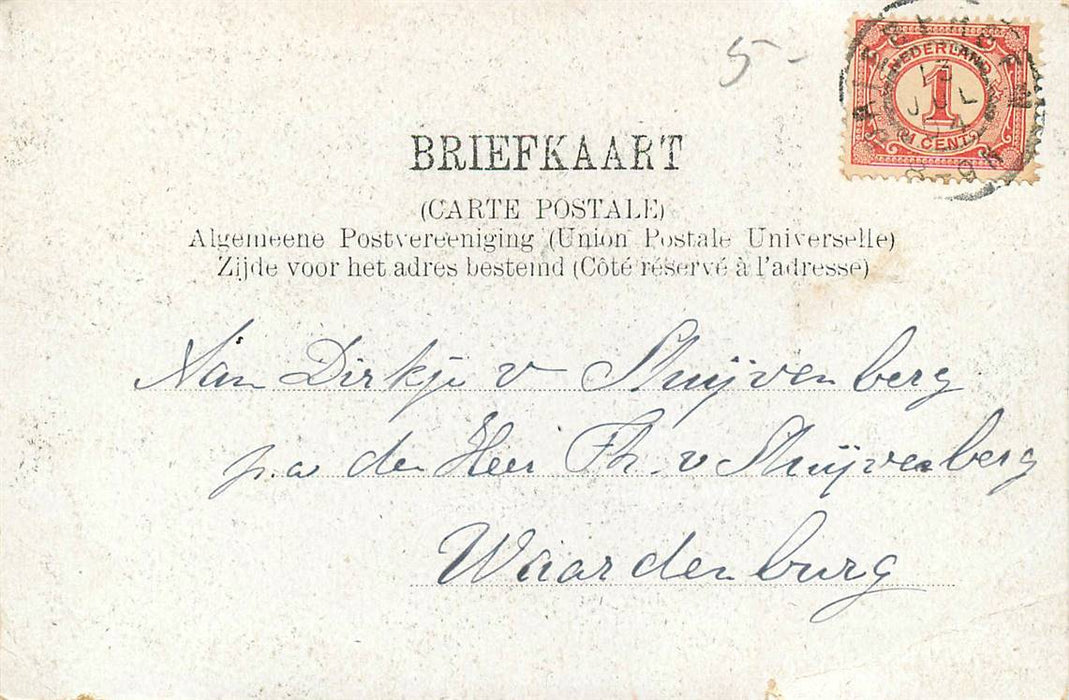 5-
NEDERLAND
13
JUL
1
1 CENT
BRIEFKAART
(CARTE POSTALE)
Algemeene Postvereeniging (Union Postale Universelle)
Zijde voor het adres bestemd (Côté réservé à l'adresse)
Aan Dirkje v Stuijvenberg
p.a de Heer Th. v Stuijvenberg
Waardenburg